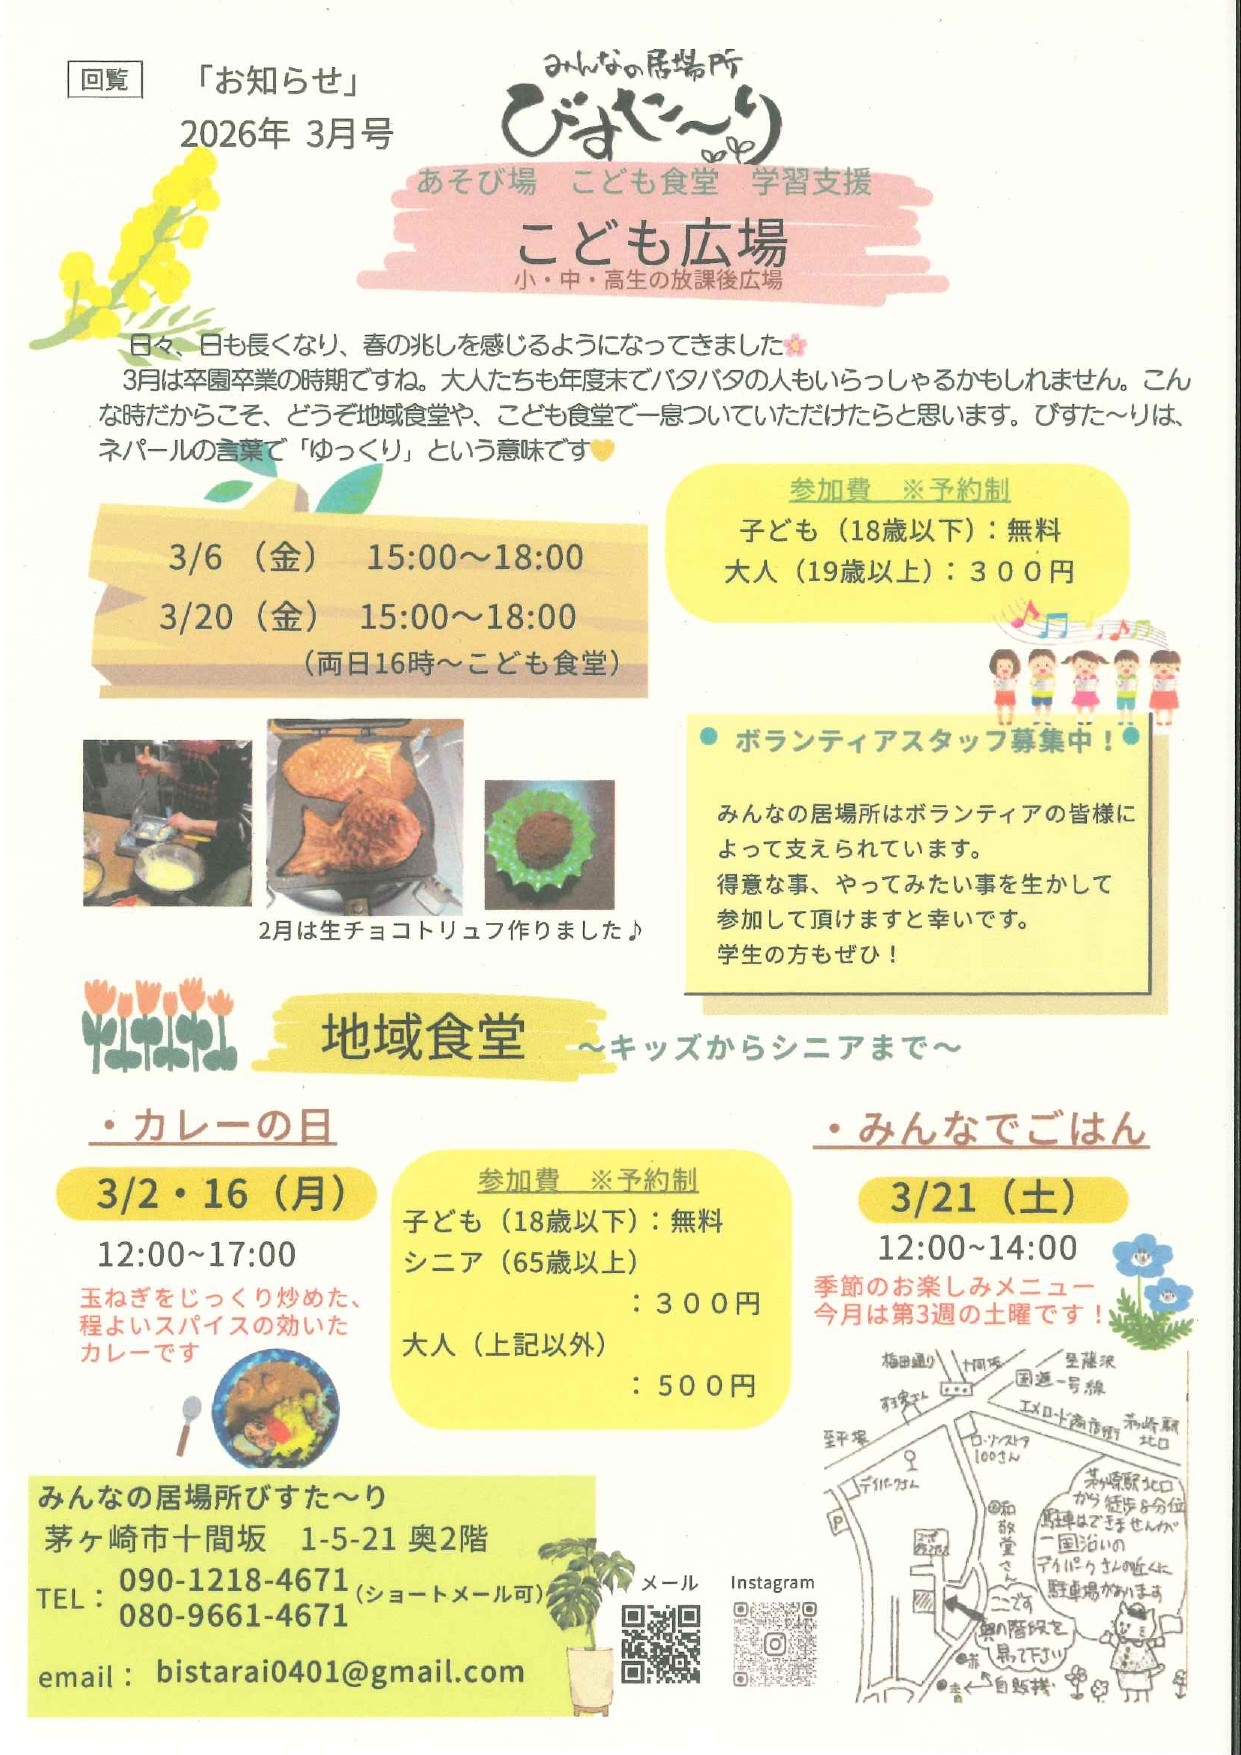 回覧
「お知らせ」
2026年 3月号
みんなの居場所
びすた〜り
あそび場　こども食堂　学習支援
こども広場
小・中・高生の放課後広場
日々、日も長くなり、春の兆しを感じるようになってきました🌸
3月は卒園卒業の時期ですね。大人たちも年度末でバタバタの人もいらっしゃるかもしれません。こん
な時だからこそ、どうぞ地域食堂や、こども食堂で一息ついていただけたらと思います。びすた〜りは、
ネパールの言葉で「ゆっくり」という意味です💛
3/6 （金）　15:00〜18:00
3/20（金）　15:00〜18:00
（両日16時〜こども食堂）
参加費　※予約制
子ども（18歳以下）：無料
大人（19歳以上）：３００円
2月は生チョコトリュフ作りました♪
ボランティアスタッフ募集中！
みんなの居場所はボランティアの皆様に
よって支えられています。
得意な事、やってみたい事を生かして
参加して頂けますと幸いです。
学生の方もぜひ！
地域食堂　〜キッズからシニアまで〜
・カレーの日
3/2・16（月）
12:00~17:00
玉ねぎをじっくり炒めた、
程よいスパイスの効いた
カレーです
参加費　※予約制
子ども（18歳以下）：無料
シニア（65歳以上）
：３００円
大人（上記以外）
：５００円
・みんなでごはん
3/21（土）
12:00~14:00
季節のお楽しみメニュー
今月は第3週の土曜です！
梅田通り
十間坂
至藤沢
国道一号線
すき家さん
エメロード商店街
茅ヶ崎駅
北口
至平塚
ローソンストア
100さん
デイパークさん
P
和敬堂さん
茅ヶ崎駅北口
から徒歩8分位
駐車はできませんが
一国沿いの
デイパークさんの近くに
駐車場があります
ここです
奥の階段を
昇って下さい
赤
青
自販機
みんなの居場所びすた〜り
茅ヶ崎市十間坂　1-5-21 奥2階
TEL： 090-1218-4671（ショートメール可）
080-9661-4671
email： bistarai0401@gmail.com
メール
Instagram